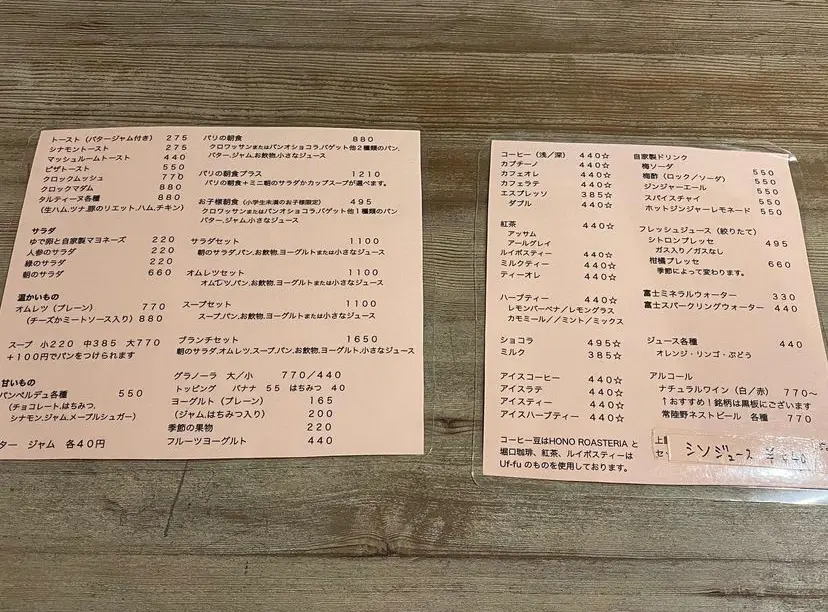 トースト（バタージャム付き） 275
シナモントースト 275
マッシュルームトースト 440
ピザトースト 550
クロックムッシュ 770
クロックマダム 880
タルティーヌ各種 880
（生ハム、ツナ、豚のリエット、ハム、チキン）
サラダ
ゆで卵と自家製マヨネーズ 220
人参のサラダ 220
緑のサラダ 220
朝のサラダ 660
温かいもの
オムレツ（プレーン） 770
（チーズかミートソース入り）880
スープ 小220 中385 大770
＋100円でパンをつけられます
甘いもの
パンペルデュ各種 550
（チョコレート、はちみつ、
シナモン、ジャム、メープルシュガー）
ター ジャム 各40円
パリの朝食 880
クロワッサンまたはパンオショコラ、バゲット他２種類のパン、
バター、ジャム、お飲物、小さなジュース
パリの朝食プラス 1210
パリの朝食＋ミニ朝のサラダかカップスープが選べます。
お子様朝食（小学生未満のお子様限定） 495
クロワッサンまたはパンオショコラ、バゲット他１種類のパン
バター、ジャム、小さなジュース
サラダセット 1100
朝のサラダ、パン、お飲物、ヨーグルトまたは小さなジュース
オムレツセット 1100
オムレツ、パン、お飲物、ヨーグルトまたは小さなジュース
スープセット 1100
スープ、パン、お飲物、ヨーグルトまたは小さなジュース
ブランチセット 1650
朝のサラダ、オムレツ、スープ、パン、お飲物、ヨーグルト、小さなジュース
グラノーラ 大／小 770／440
トッピング バナナ 55 はちみつ 40
ヨーグルト（プレーン） 165
（ジャム、はちみつ入り） 200
季節の果物 220
フルーツヨーグルト 440
コーヒー（浅／深） 440☆
カプチーノ 440☆
カフェオレ 440☆
カフェラテ 440☆
エスプレッソ 385☆
ダブル 440☆
紅茶 440☆
アッサム
アールグレイ
ルイボスティー 440☆
ミルクティー 440☆
ティーオレ 440☆
ハーブティー 440☆
レモンバーベナ／レモングラス
カモミール／／ミント／ミックス
ショコラ 495☆
ミルク 385☆
アイスコーヒー 440☆
アイスラテ 440☆
アイスティー 440☆
アイスハーブティー 440☆
コーヒー豆はHONO ROASTERIA と
堀口珈琲、紅茶、ルイボスティーは
Uf-fu のものを使用しております。
自家製ドリンク
梅ソーダ 550
梅酢（ロック／ソーダ） 550
ジンジャーエール 550
スパイスチャイ 550
ホットジンジャーレモネード 550
フレッシュジュース（絞りたて）
シトロンプレッセ 495
ガス入り／ガスなし
柑橘プレッセ 660
季節によって変わります。
富士ミネラルウォーター 330
富士スパークリングウォーター 440
ジュース各種 440
オレンジ・リンゴ・ぶどう
アルコール
ナチュラルワイン（白／赤） 770〜
↑おすすめ！銘柄は黒板にございます
常陸野ネストビール 各種 770
上
セッ
シソジュース